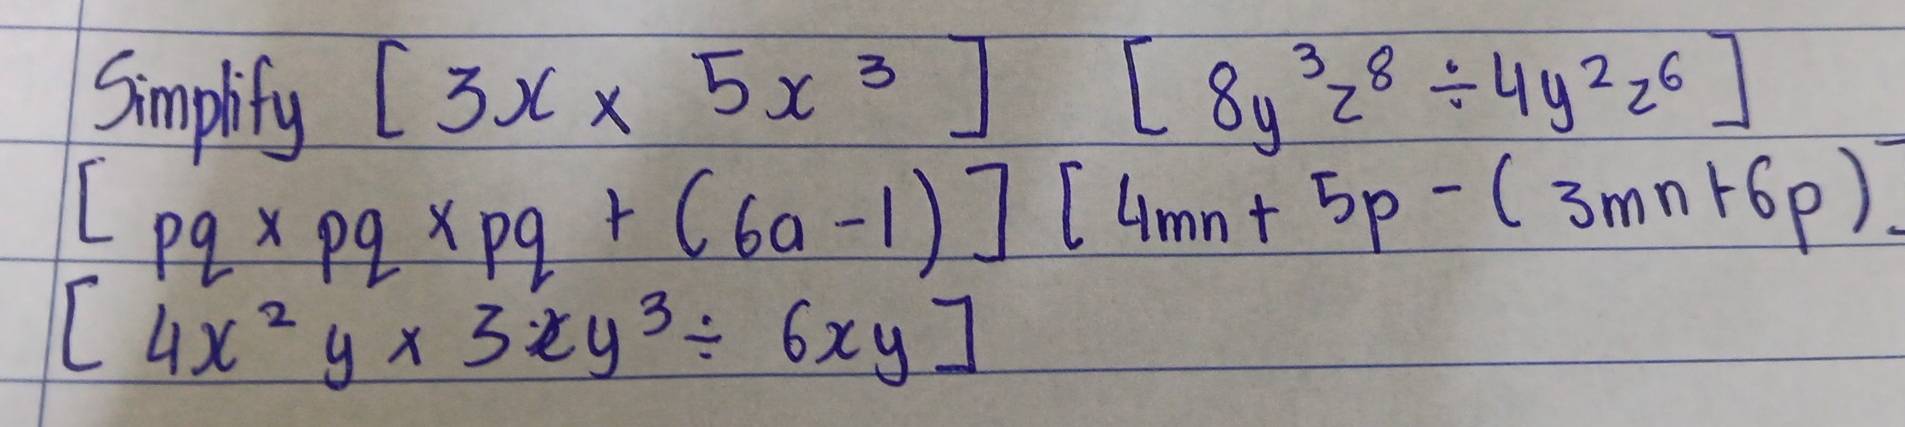 Simplify [3x × 5x³] [8y³z⁸ ÷ 4y²z⁶]
[pq × pq × pq + (6a - 1)] [4mn + 5p - (3mn + 6p)]
[4x²y × 3xy³ ÷ 6xy]